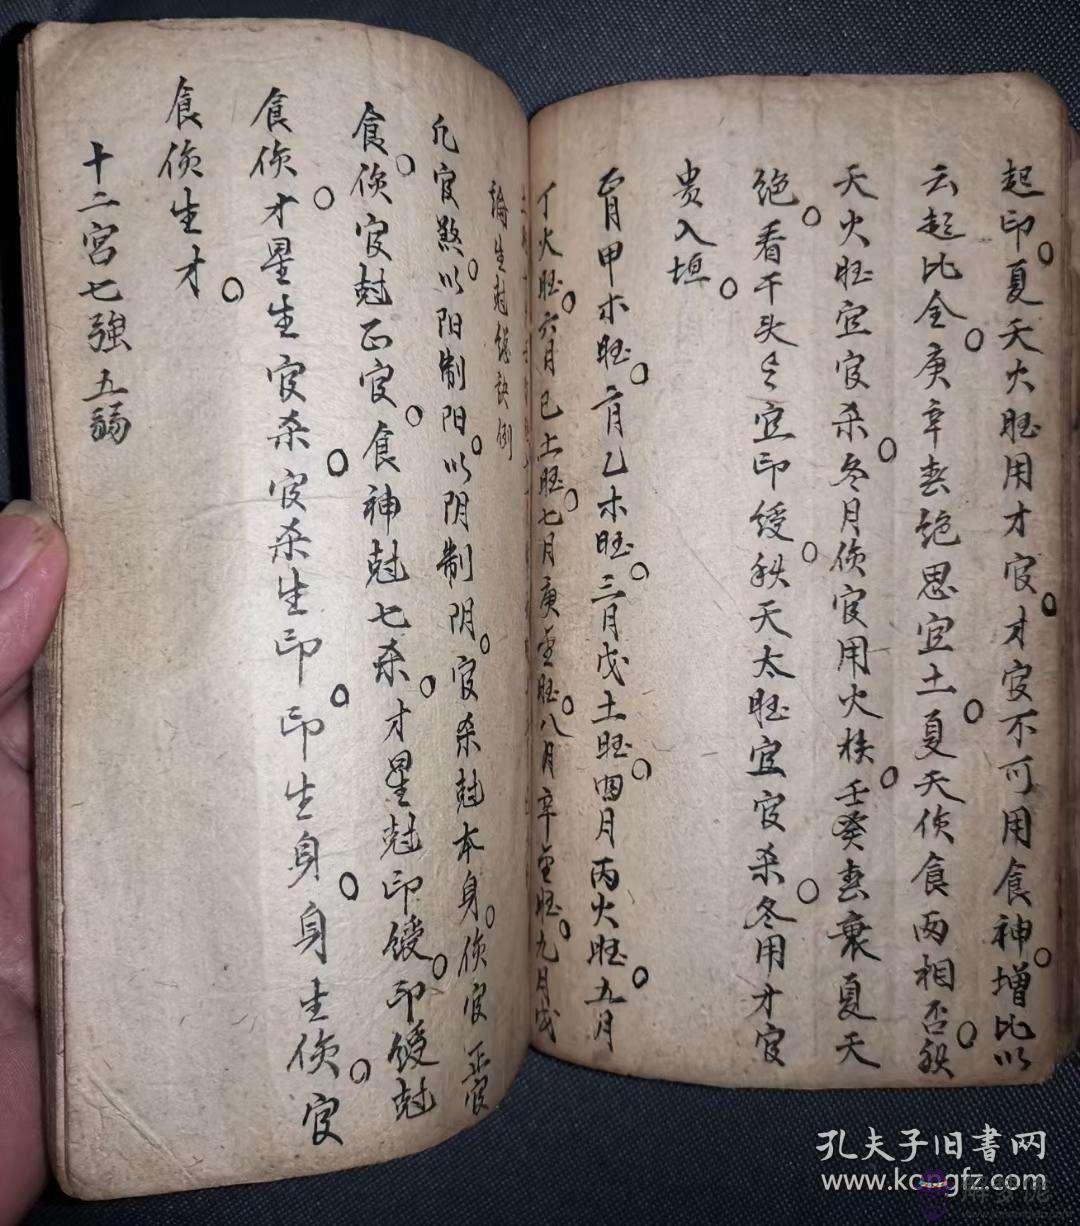 起印。夏天火旺用才官。才官不可用食神。增比以
云起比全。庚辛春绝思宜土。夏天傷食两相否。秋
天火旺宜官杀。冬月傷官用火扶。壬癸春衰夏天
绝。看干头々宜印绶。秋天太旺宜官杀。冬用才官
贵入垣。
正月甲木旺。二月乙木旺。三月戊土旺。四月丙火旺。五月
丁火旺。六月己土旺。七月庚金旺。八月辛金旺。九月戊
論生尅
凡官煞。以阳制阳。以阴制阴。官杀尅本身。傷官正官
食。傷官尅正官。食神尅七杀。才星尅印绶。印绶尅
食傷。才星生官杀。官杀生印。印生身。身生傷官
食傷生才。
十二宫七強五弱
孔夫子旧書网
www.kongfz.com